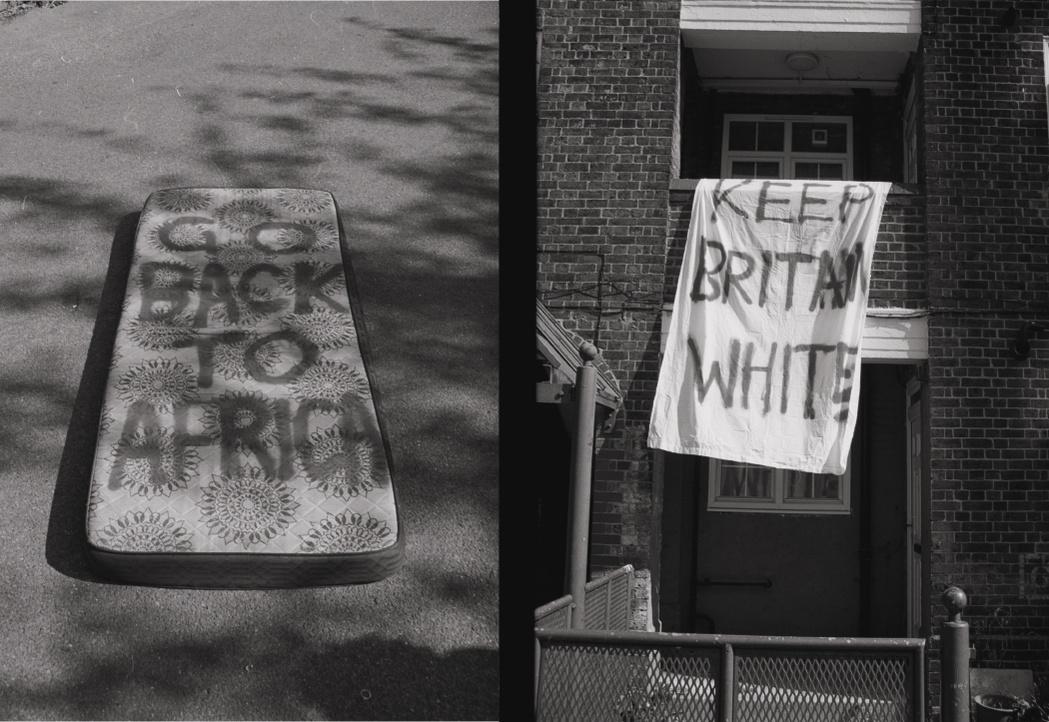 GO
BACK
TO
AFRICA
KEEP
BRITAIN
WHITE